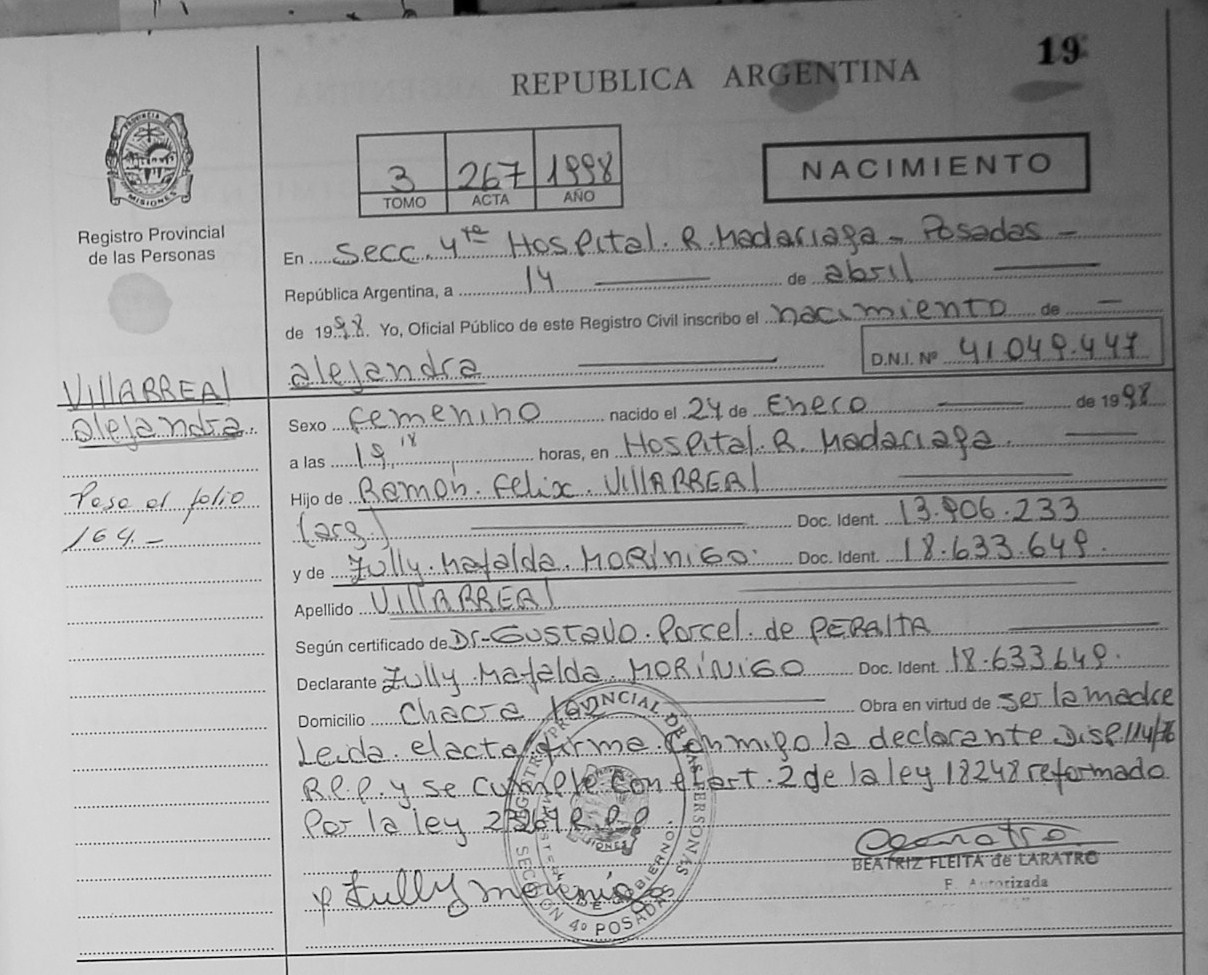 19
REPUBLICA ARGENTINA
PROVINCIA DE
MISIONES
Registro Provincial
de las Personas
3 267 1998
TOMO ACTA AÑO
NACIMIENTO
En Secc. 4ta Hospital. R. Madariaga - Posadas -
República Argentina, a 14 de abril
de 1998. Yo, Oficial Público de este Registro Civil inscribo el nacimiento de
alejandra D.N.I. Nº 41.049.447
VILLARREAL
alejandra.
Sexo Femenino nacido el 24 de Enero de 1998
a las 19,18 horas, en Hospital. R. Madariaga.
Hijo de Ramón. Felix. VILLARREAL
Pasa al folio
164.-
(arg.) Doc. Ident. 13.906.233
y de Zully. Mafalda. MORÍNIGO. Doc. Ident. 18.633.649.
Apellido VILLARREAL
Según certificado de Dr. GUSTAVO. Porcel. de PERALTA
Declarante Zully. Mafalda. MORÍNIGO Doc. Ident. 18.633.649.
Domicilio Chacra Obra en virtud de ser la madre
Leida. el acta firma. Conmigo la declarante
R.P.P. y se cumple con el art. 2 de la ley 18248 reformado
Por la ley
BEATRIZ FLEITA de LARATRO
F. Autorizada
Zully
REGISTRO PROVINCIAL DE LAS PERSONAS
SECCION 4º POSADAS